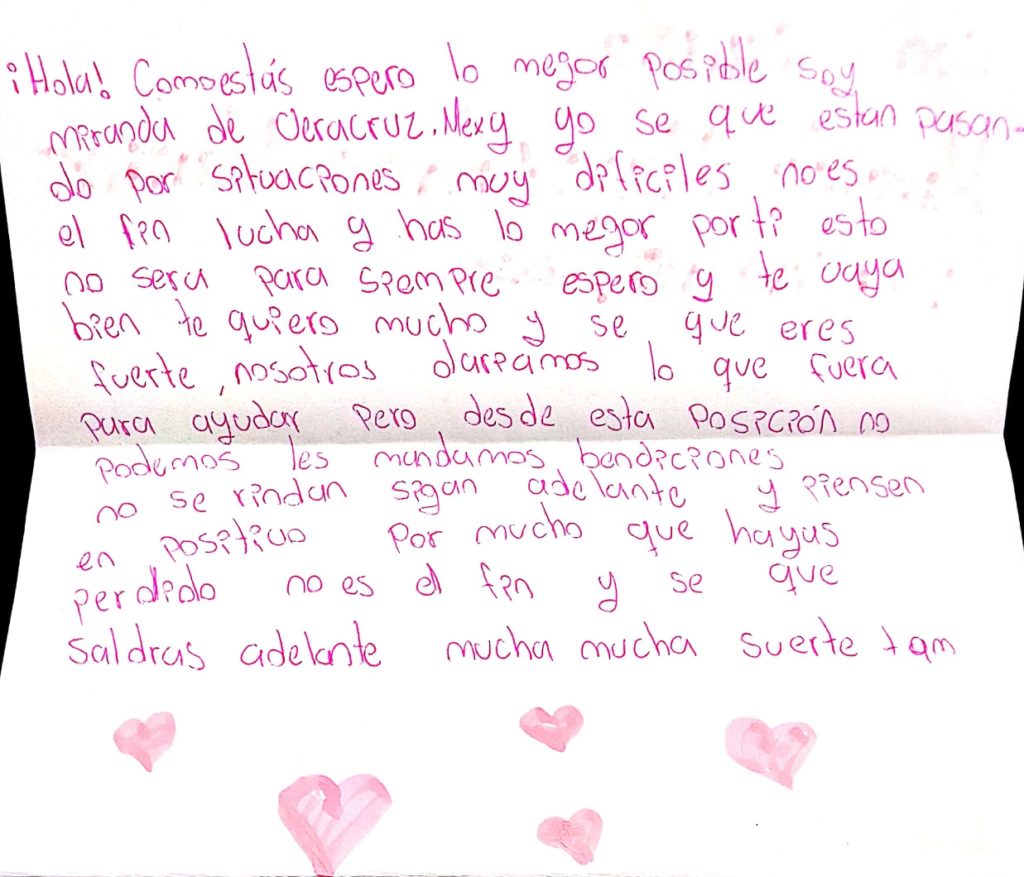 ¡Hola! Como estás espero lo megor posible soy
miranda de Veracruz. Mex y yo se que estan pasan-
do por situaciones muy dificiles no es
el fin lucha y has lo megor por ti esto
no sera para siempre espero y te vaya
bien te quiero mucho y se que eres
fuerte, nosotros dareamos lo que fuera
para ayudar pero desde esta posición no
podemos les mandamos bendiciones
no se rindan sigan adelante y piensen
en positivo por mucho que hayas
perdido no es el fin y se que
saldras adelante mucha mucha suerte tqm